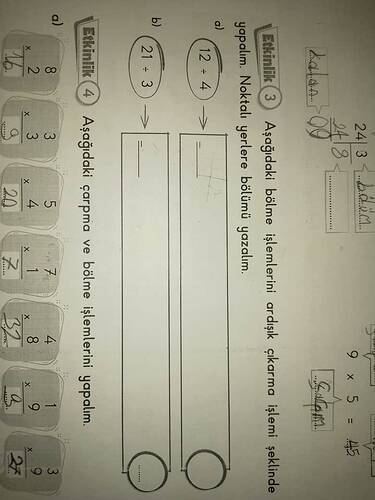 24 3 bölüm
24 8
kalan 00
9 x 5 = 45
çarpım
Etkinlik 3 Aşağıdaki bölme işlemlerini ardışık çıkarma işlemi şeklinde
yapalım. Noktalı yerlere bölümü yazalım.
a) 12 ÷ 4
b) 21 ÷ 3
Etkinlik 4 Aşağıdaki çarpma ve bölme işlemlerini yapalım.
a) 8 3 5 7 4 1 3
x 2 x 3 x 4 x 1 x 8 x 9 x 9
16 9 20 7 32 9 27